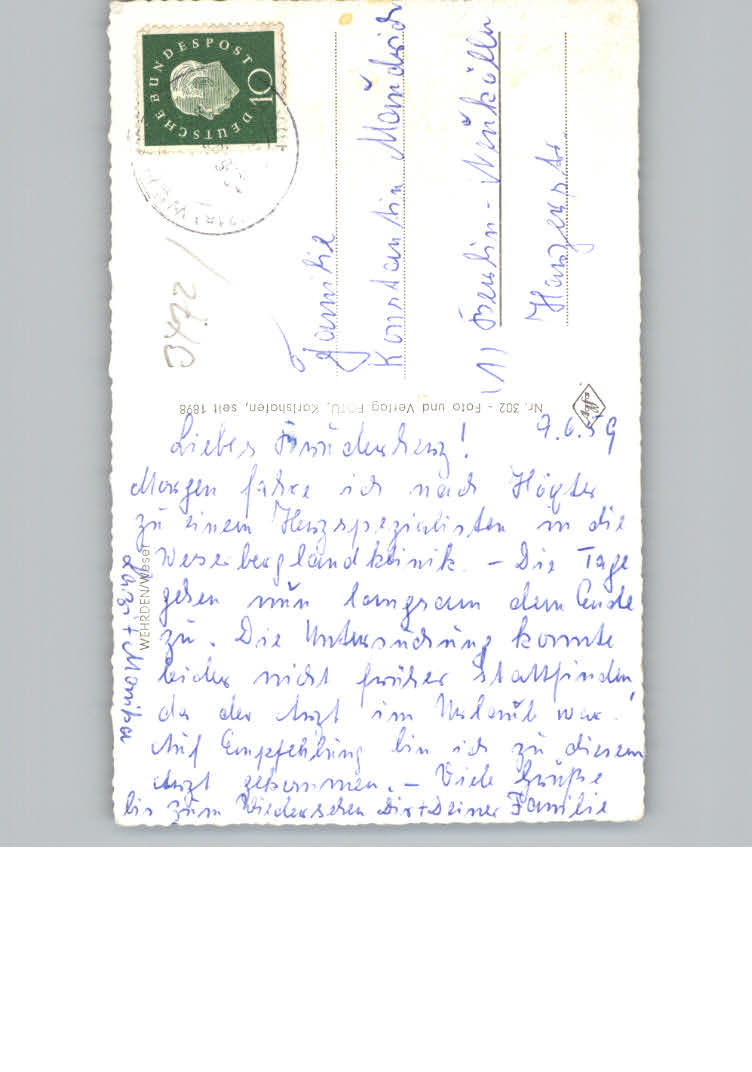 DEUTSCHE BUNDESPOST
10
3472
Familie
Konstantin
(1) Berlin - Neukölln
Harzerstr.
Nr. 302 - Foto und Verlag FOTU, Karlshafen, seit 1898
Agfa
WEHRDEN/Weser
9.6.59
Liebes Bruderherz!
Morgen fahre ich nach Höxter
zu einem Herzspezialisten in die
Weserberglandklinik. - Die Tage
gehen nun langsam dem Ende
zu. Die Untersuchung konnte
leider nicht früher stattfinden,
da der Arzt im Urlaub war.
Auf Empfehlung bin ich zu diesem
Arzt gekommen. - Viele Grüße
bis zum Wiedersehen Dir + Deiner Familie
+ Monika